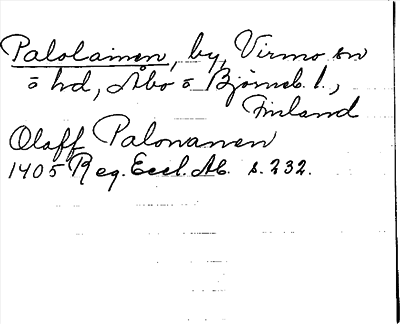 Palolainen, by, Virmo sn
o hd, Åbo o Björneb. l.,
Finland
Olaff Palonanen
1405 Reg. Eccl. Ab. s. 232.